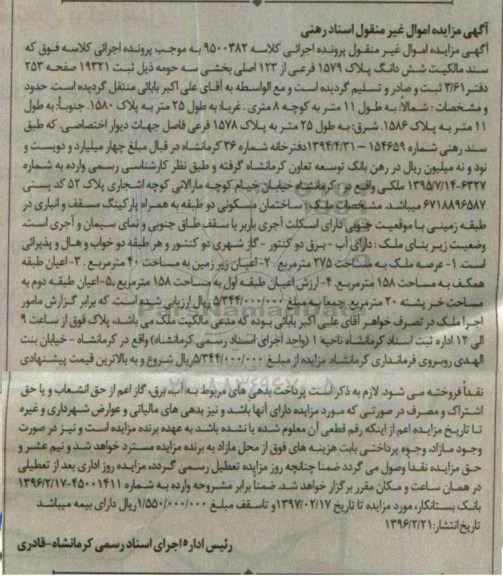 آگهی مزایده اموال غیر منقول اسناد رهنی
آگهی مزایده اموال غیر منقول پرونده اجرائی کلاسه ۹۵۰۰۳۸۲ به موجب پرونده اجرائی کلاسه فوق که
سند مالکیت شش دانگ پلاک ۱۵۷۹ فرعی از ۱۲۳ اصلی بخشی سه حومه ذیل ثبت ۱۹۳۲۱ صفحه ۲۵۳
دفتر ۳/۶۱ ثبت و صادر و تسلیم گردیده است و مع الواسطه به آقای علی اکبر بابائی منتقل گردیده است. حدود
و مشخصات : شمالاً: به طول ۱۱ متر به کوچه ۸ متری . غرباً: به طول ۲۵ متر به پلاک ۱۵۸۰. جنوباً: به طول
۱۱ متر به پلاک ۱۵۸۶. شرق: به طول ۲۵ متر به پلاک ۱۵۷۸ فرعی فاصل جهات دیوار اختصاصی. که طبق
سند رهنی شماره ۱۵۴۶۵۹ – ۱۳۹۴/۴/۳۱ دفترخانه شماره ۳۶ کرمانشاه در قبال مبلغ چهار میلیارد و دویست و
نود و نه میلیون ریال در رهن بانک توسعه تعاون کرمانشاه گرفته و طبق نظر کارشناسی رسمی وارده به شماره
۶۳۲۷–۱۳۹۵/۷/۱۴ ملکی واقع در : کرمانشاه خیابان خیام کوچه مارالانی کوچه اشجاری پلاک ۵۲ کد پستی
۶۷۱۸۸۹۶۵۸۷ میباشد. مشخصات ملک: ساختمان مسکونی دو طبقه به همراه پارکینگ مسقف و انباری در
طبقه زمینی با موقعیت جنوبی دارای اسکلت آجری باربر با سقف طاق جنوبی و نمای سیمان و آجری است.
وضعیت زیر بنای ملک : دارای آب - برق دو کنتور - گاز شهری دو کنتور و هر طبقه دو خواب و هال و پذیرائی
است. ۱- عرصه ملک به مساحت ۲۷۵ مترمربع . ۲- اعیان زیر زمین به مساحت ۴۰ مترمربع . ۳- اعیان طبقه
همکف به مساحت ۱۵۸ مترمربع. ۴- ارزش اعیان طبقه اول به مساحت ۱۵۸ مترمربع .۵- اعیان طبقه دوم به
مساحت خر پشته ۲۰ مترمربع. جمعا به مبلغ ۵/۳۴۴/۰۰۰/۰۰۰ ریال ارزیابی شده است. که برابر گزارش مامور
اجرا ملک در تصرف خواهر آقای علی اکبر بابائی بوده که مدعی مالکیت ملک می باشد، پلاک فوق از ساعت ۹
الی ۱۲ اداره ثبت اسناد کرمانشاه ناحیه ۱ (واحد اجرای اسناد رسمی کرمانشاه) واقع در کرمانشاه - خیابان بنت
الهدی روبروی فرمانداری کرمانشاه مزایده از مبلغ ۵/۳۴۴/۰۰۰/۰۰۰ریال شروع و به بالاترین قیمت پیشنهادی
نقداً فروخته می شود. لازم به ذکر است پرداخت بدهی های مربوط به آب، برق، گاز اعم از حق انشعاب و یا حق
اشتراک و مصرف در صورتی که مورد مزایده دارای آنها باشد و نیز بدهی های مالیاتی و عوارض شهرداری و غیره
تا تاریخ مزایده اعم از اینکه رقم قطعی آن معلوم شده یا نشده باشد به عهده برنده مزایده است و نیز در صورت
وجود مازاد، وجوه پرداختی بابت هزینه های فوق از محل مازاد به برنده مزایده مسترد خواهد شد و نیم عشر و
حق مزایده نقداً وصول می گردد ضمنا چنانچه روز مزایده تعطیل رسمی گردد، مزایده روز اداری بعد از تعطیلی
در همان ساعت و مکان مقرر برگزار خواهد شد. ضمناً برابر مشروحه وارده به شماره ۴۵۰۰۱۴۱۱–۱۳۹۶/۲/۱۷
بانک بستانکار، مورد مزایده تا تاریخ ۱۳۹۷/۰۲/۱۷ و تا سقف مبلغ ۱/۵۵۰/۰۰۰/۰۰۰ریال دارای بیمه میباشد
تاریخ انتشار: ۱۳۹۶/۲/۲۱
رئیس اداره اجرای اسناد رسمی کرمانشاه-قادری